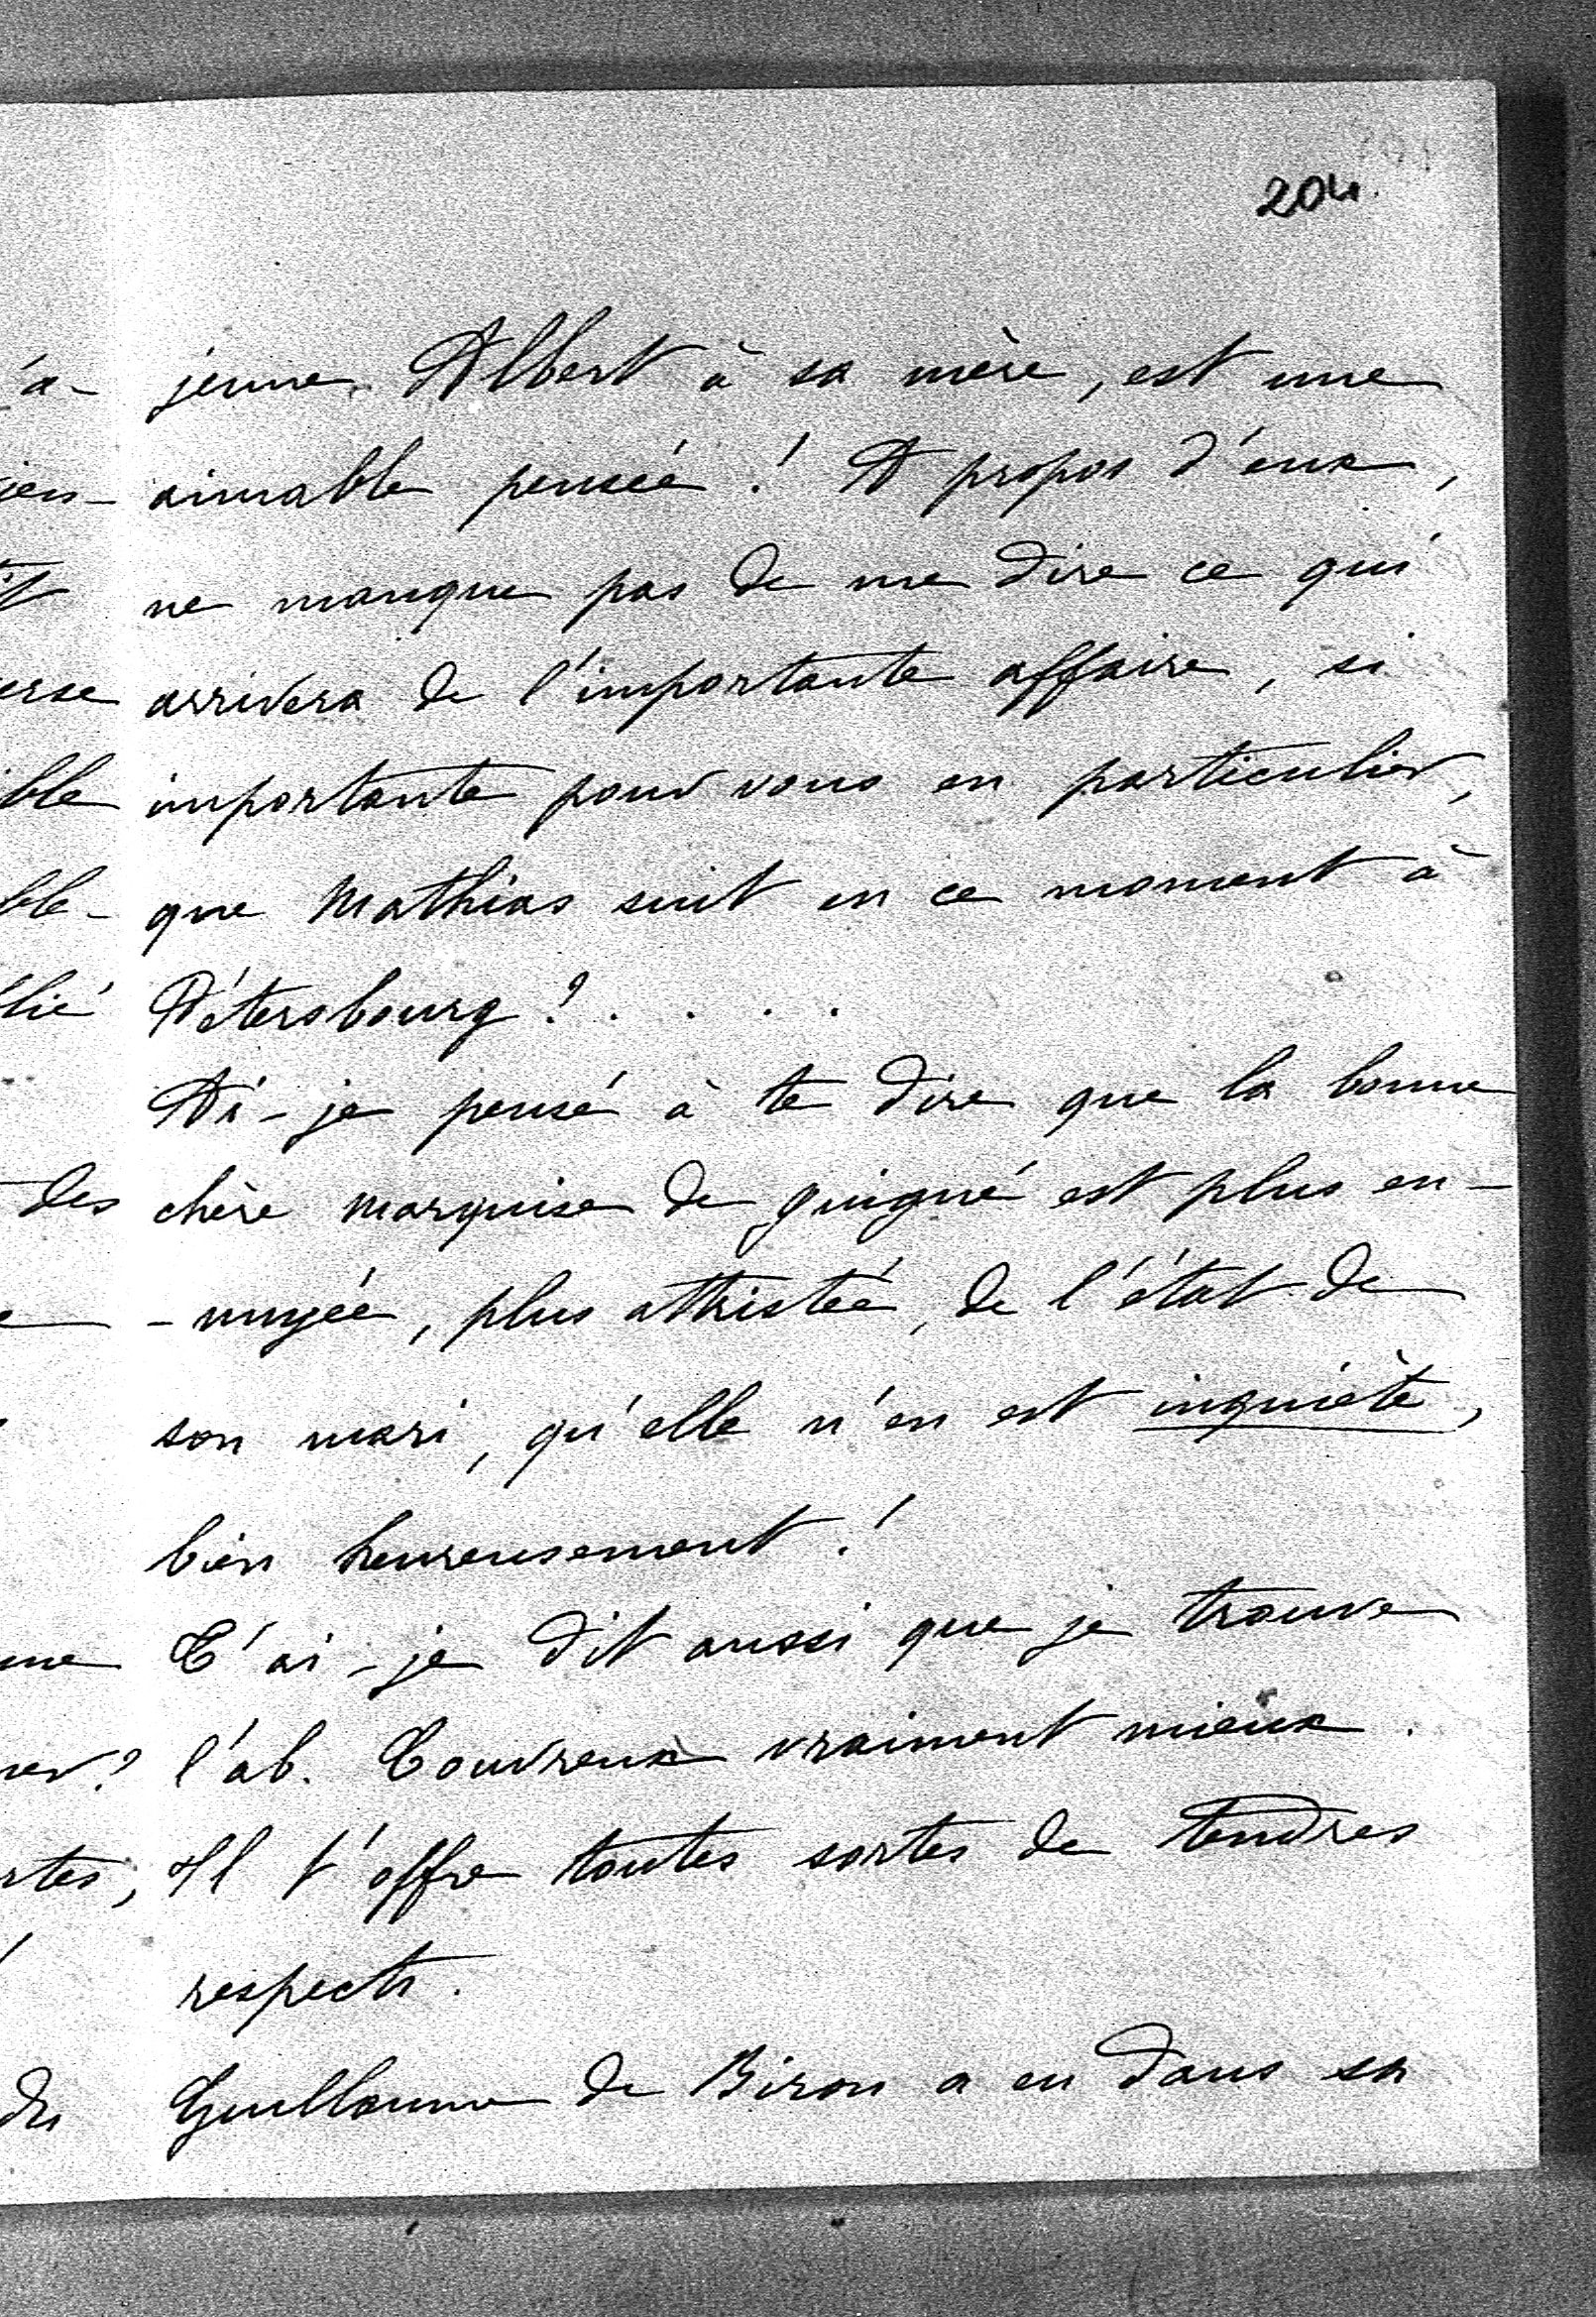 204
jeune Albert à sa mère, est une
aimable pensée ! A propos d'eux,
ne manque pas de me dire ce qui
arrivera de l'importante affaire, si
importante pour vous en particulier,
que Mathias suit en ce moment à
Pétersbourg ? . . . . .
Ai-je pensé à te dire que la bonne
chère marquise de guigné est plus en-
-nuyée, plus attristée, de l'état de
son mari, qu'elle n'en est inquiète,
bien heureusement !
T'ai-je dit aussi que je trouve
l'ab. Couvreux vraiment mieux.
Il t'offre toutes sortes de tendres
respects.
Guillaume de Biron a eu dans sa